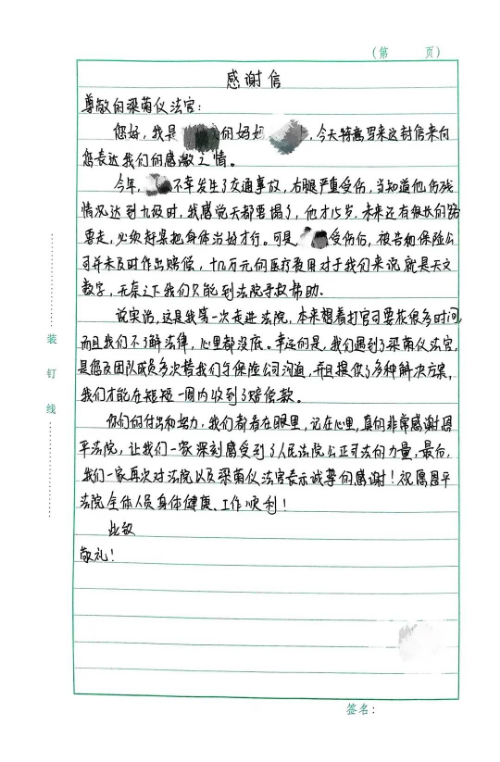 (第 页)
感谢信
尊敬的梁菊仪法官:
您好,我是的妈妈,今天特意写来这封信来向
您表达我们的感激之情。
今年,不幸发生了交通事故,右腿严重受伤,当知道他伤残
情况达到九级时,我感觉天都要塌了,他才15岁,未来还有很长的路
要走,必须赶紧把身体治好才行。可是受伤后,被告和保险公
司并未及时作出赔偿,十几万元的医疗费用对于我们来说就是天文
数字,无奈之下我们只能到法院寻求帮助。
说实话,这是我第一次走进法院,本来想着打官司要花很多时间,
而且我们不了解法律,心里都没底。幸运的是,我们遇到了梁菊仪法官,
是您及团队成员多次替我们与保险公司沟通,并且提供了多种解决方案,
我们才能在短短一周内收到了赔偿款。
你们的付出和努力,我们都看在眼里,记在心里,真的非常感谢恩
平法院,让我们一家深刻感受到了人民法院公正司法的力量,最后,
我们一家再次对法院以及梁菊仪法官表示诚挚的感谢!祝愿恩平
法院全体人员身体健康、工作顺利!
此致
敬礼!
装
订
线
签名: